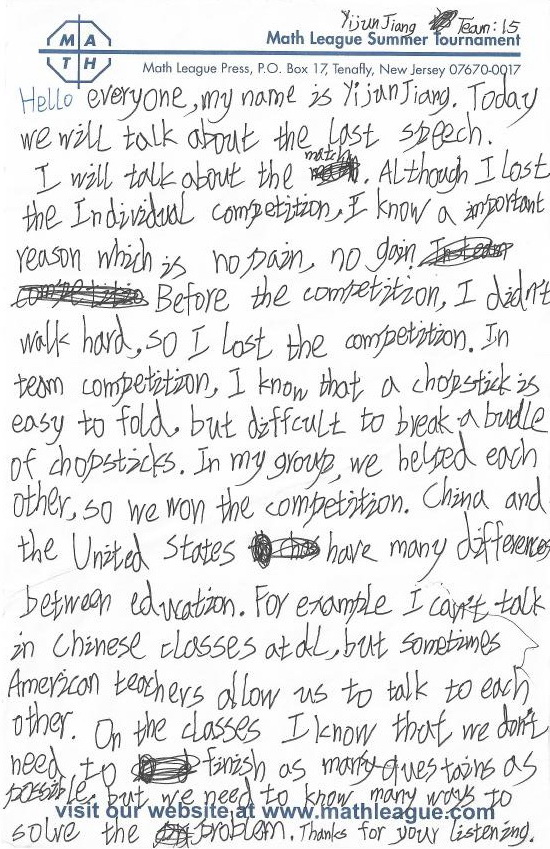 Yijun Jiang Team: 15
M A
T H
Math League Summer Tournament
Math League Press, P.O. Box 17, Tenafly, New Jersey 07670-0017
Hello everyone, my name is Yijun Jiang. Today
we will talk about the last speech.
I will talk about the match. Although I lost
the Individual competition, I know a important
reason which is no pain, no gain
Before the competition, I didn't
walk hard, so I lost the competition. In
team competition, I know that a chopstick is
easy to fold, but diffcult to break a budle
of chopsticks. In my group, we helped each
other, so we won the competition. China and
the United States have many differences
between education. For example I can't talk
in Chinese classes at all, but sometimes
American teachers allow us to talk to each
other. On the classes I know that we don't
need to finish as many questains as
possible, but we need to know many ways to
visit our website at www.mathleague.com
solve the problem. Thanks for your listening.